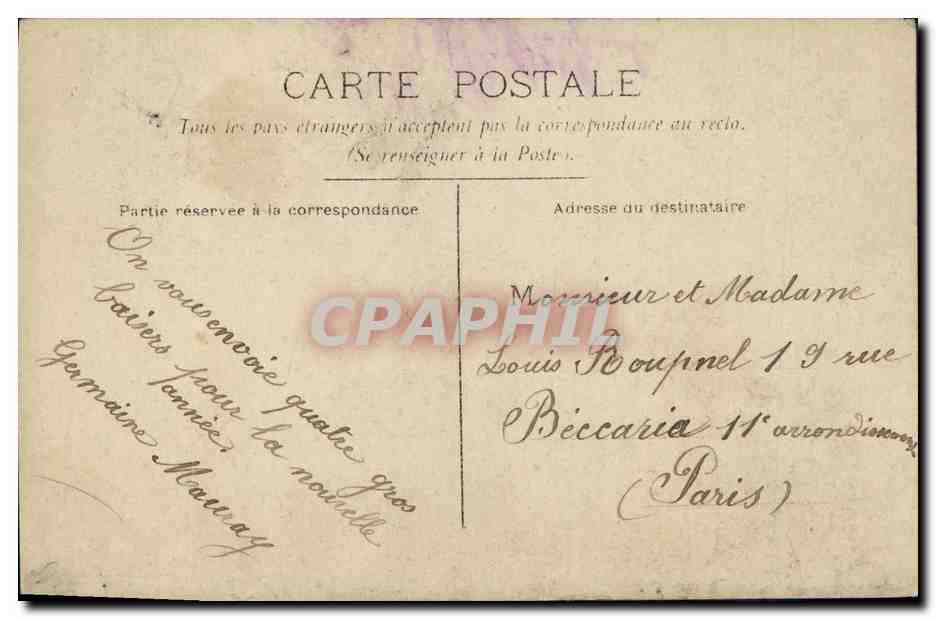 CARTE POSTALE
Tous les pays étrangers n'acceptent pas la correspondance au recto.
(Se renseigner à la Poste).
Partie réservée à la correspondance
Adresse du destinataire
On vous envoie quatre gros
baisers pour la nouvelle
année.
Germaine Mauray
Monsieur et Madame
Louis Roupnel 19 rue
Béccaria 11e arrondissement
(Paris)
CPAPHIL